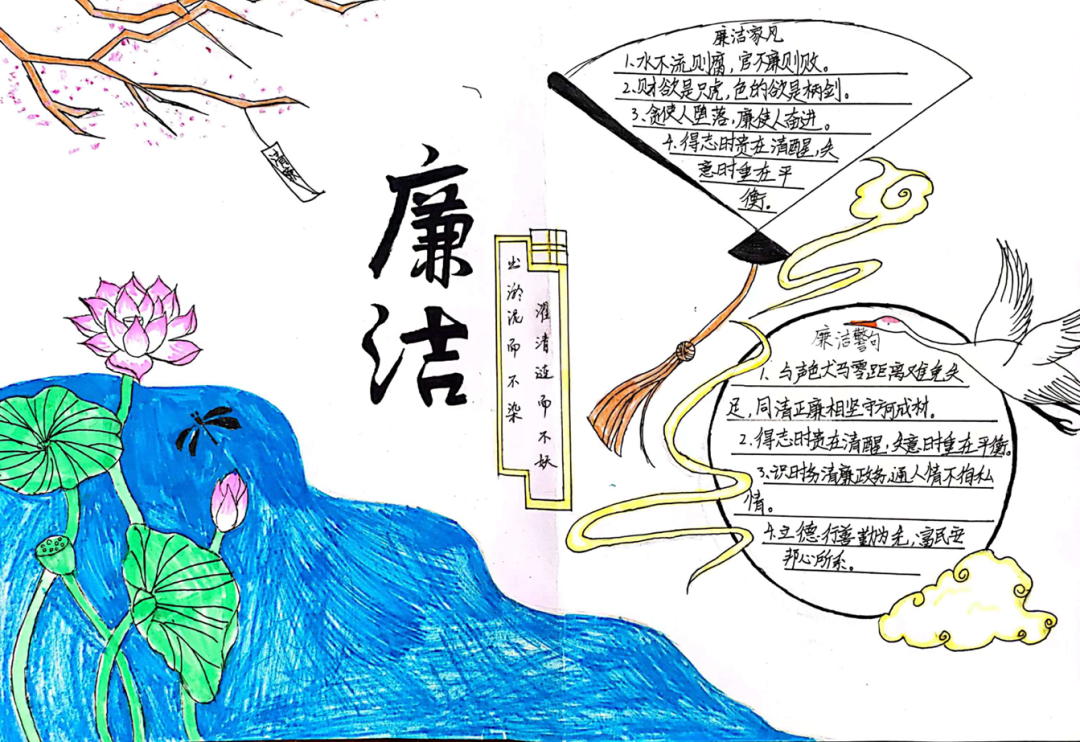 廉洁
出淤泥而不染
濯清涟而不妖
廉洁家风
1.水不流则腐,官不廉则败。
2.财欲是只虎,色的欲是柄剑。
3.贪使人堕落,廉使人奋进。
4.得志时贵在清醒,失
意时重在平
衡。
廉洁警句
1.与声色犬马零距离难免失
足,同清正廉相坚守河成材.
2.得志时贵在清醒,失意时重在平衡。
3.识时务清廉政务,通人情不徇私
情。
4.立德行善勤为先,富民安
邦心所系。